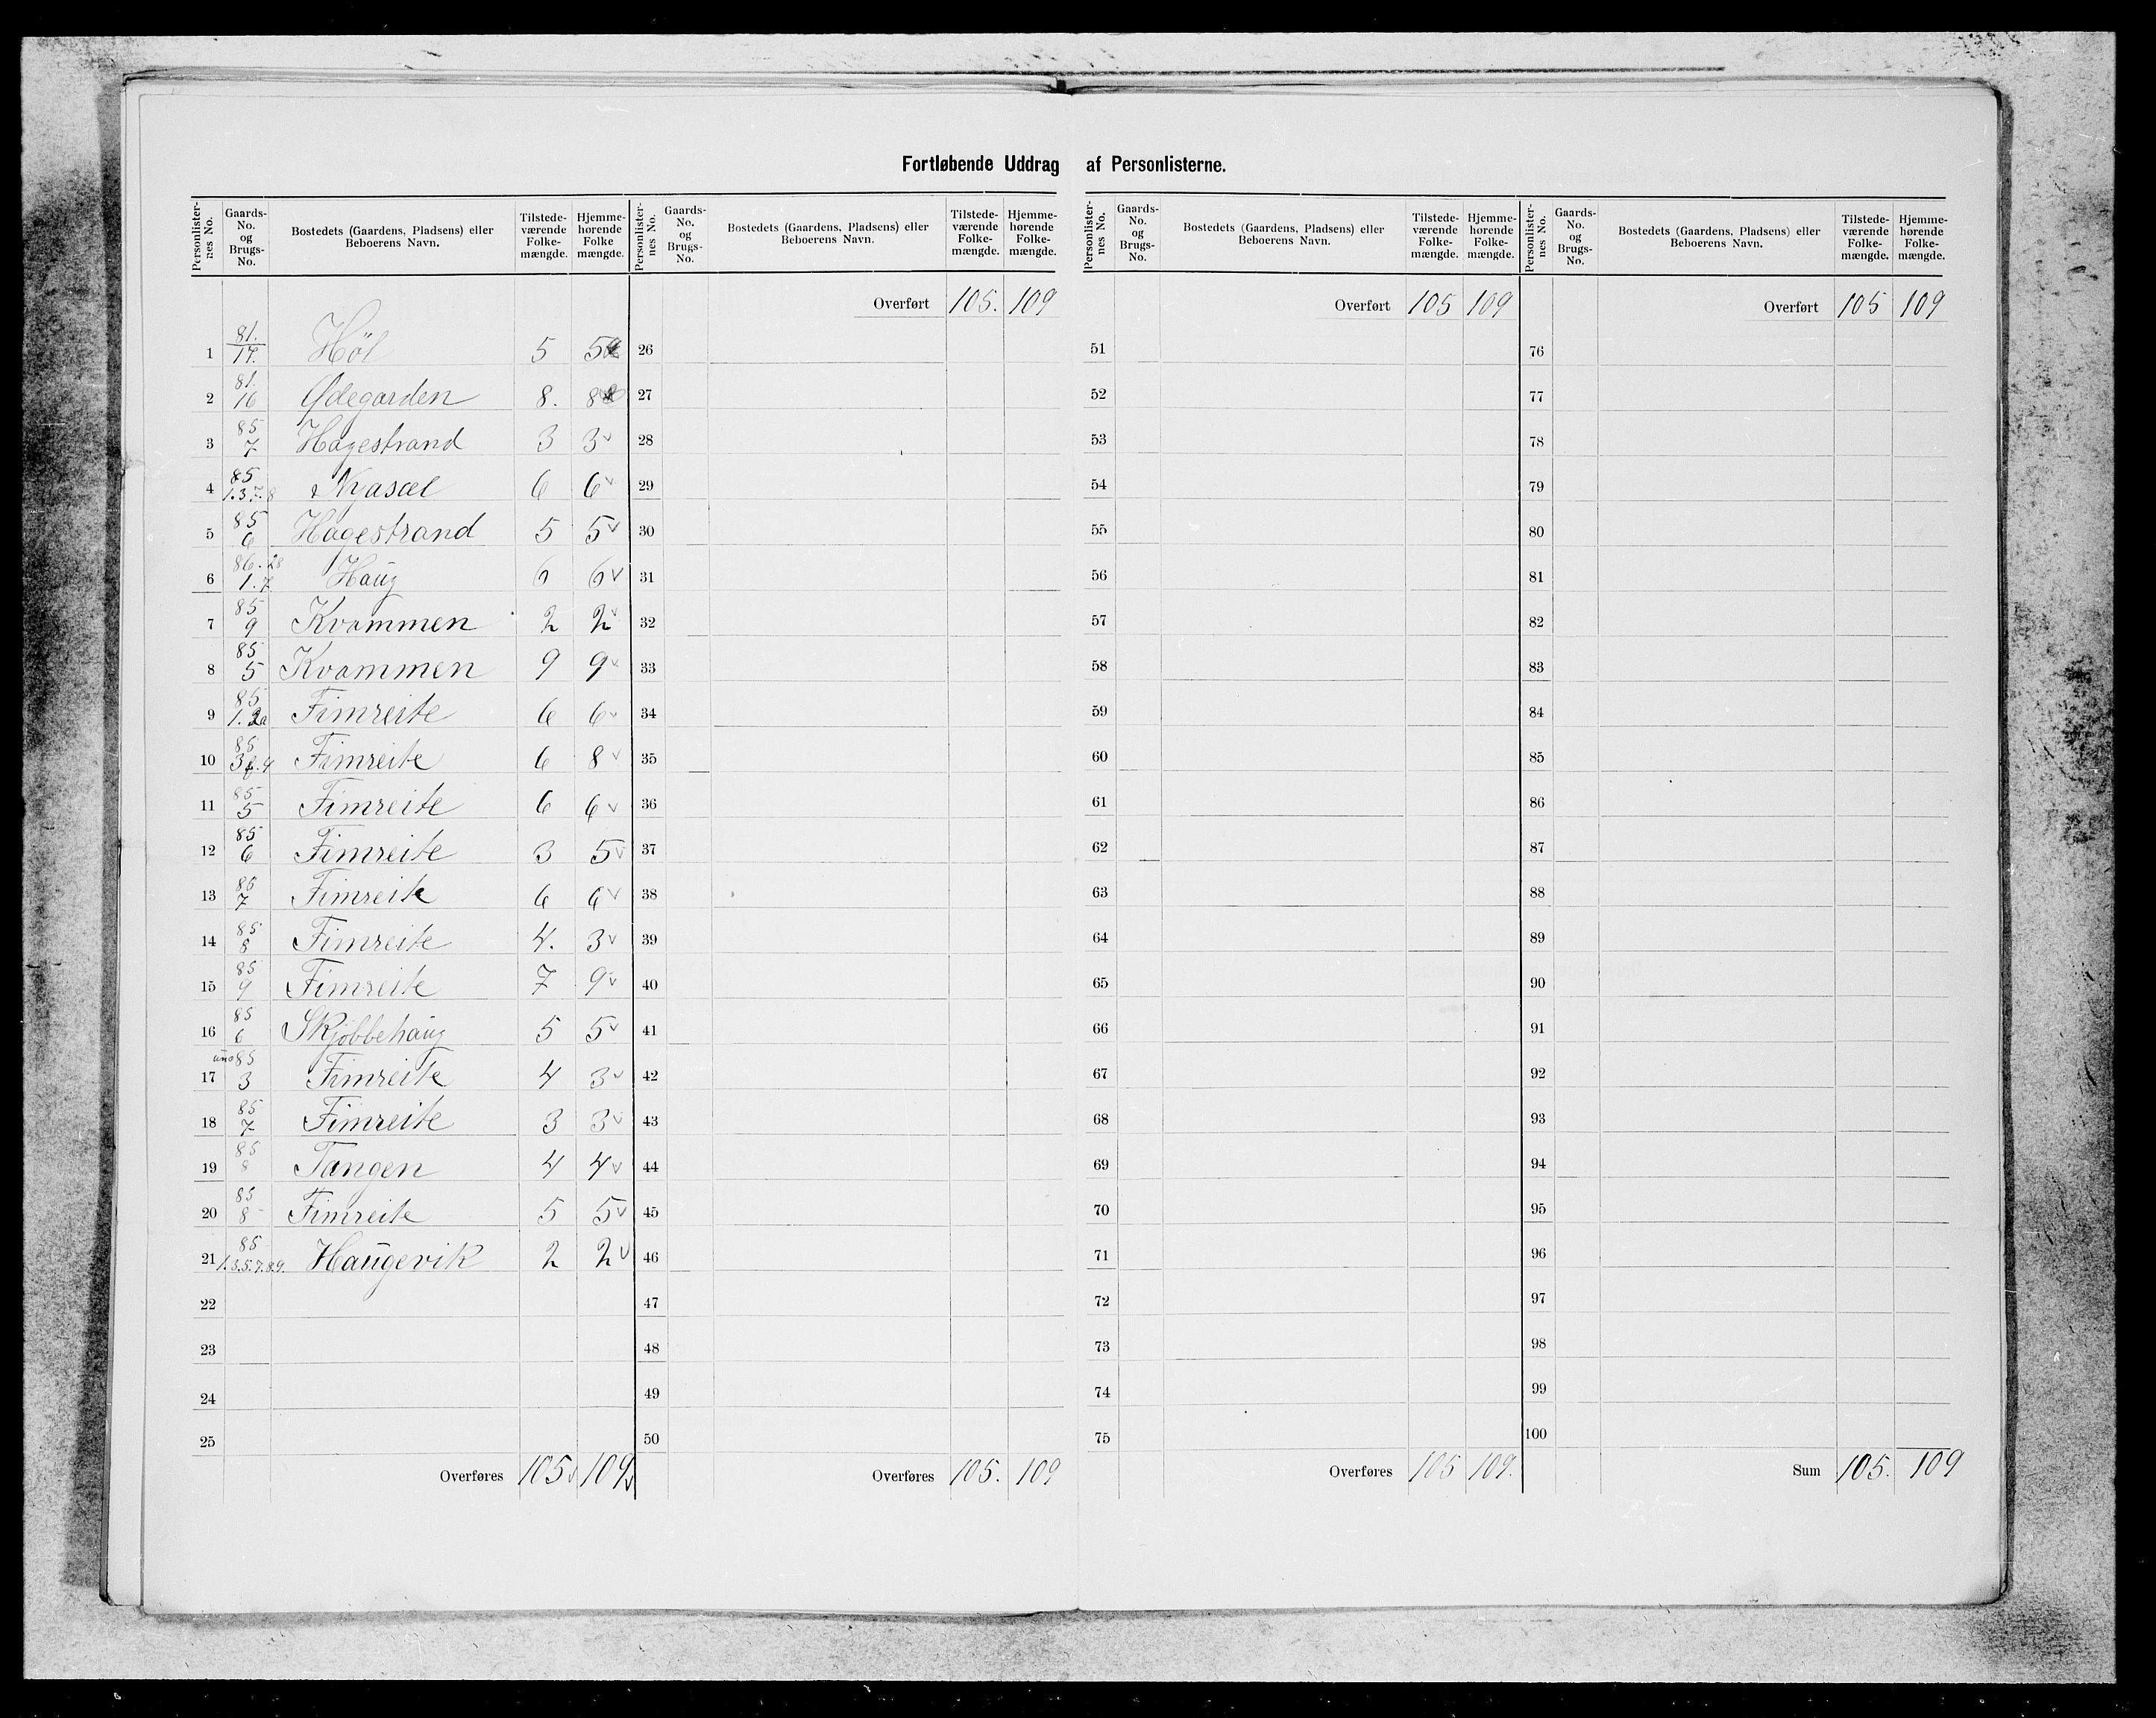 Fortløbende Uddrag af Personlisterne.
Personlister-nes No. Gaards-No. og Brugs-No. Bostedets (Gaardens, Pladsens) eller Beboerens Navn. Tilstede-værende Folke-mængde. Hjemme-hørende Folke mængde.
1 81. 17. Höl 5 5
2 81. 16 Ødegarden 8. 8
3 85 7 Hagestrand 3 3 v
4 85 1.3.7.8 Nyasæl 6 6 v
5 85 6 Hagestrand 5 5 v
6 86.28 1.7 Haug 6 6 v
7 85 9 Kvammen 2 2 v
8 85 5 Kvammen 9 9 v
9 85 1. 2a Fimreite 6 6 v
10 85 3 6.4 Fimreite 6 8 v
11 85 5 Fimreite 6 6 v
12 85 6 Fimreite 3 5 v
13 85 7 Fimreite 6 6 v
14 85 8 Fimreite 4. 3 v
15 85 9 Fimreite 7 9 v
16 85 6 Skjöbbehaug 5 5 v
17 85 3 Fimreite 4 3 v
18 85 7 Fimreite 3 3 v
19 85 8 Tangen 4 4 v
20 85 8 Fimreite 5 5 v
21 85 1.3.5.7.8.9. Haugevik 2 2 v
22
23
24
25
Overføres 105 v 109 v
Personlister-nes No. Gaards-No. og Brugs-No. Bostedets (Gaardens, Pladsens) eller Beboerens Navn. Tilstede-værende Folke-mængde. Hjemme-hørende Folke-mængde.
Overført 105. 109
26
27
28
29
30
31
32
33
34
35
36
37
38
39
40
41
42
43
44
45
46
47
48
49
50
Overføres 105. 109
Personlister-nes No. Gaards-No. og Brugs-No. Bostedets (Gaardens, Pladsens) eller Beboerens Navn. Tilstede-værende Folke-mængde. Hjemme-hørende Folke-mængde.
Overført 105 109
51
52
53
54
55
56
57
58
59
60
61
62
63
64
65
66
67
68
69
70
71
72
73
74
75
Overføres 105 109.
Personlister-nes No. Gaards-No. og Brugs-No. Bostedets (Gaardens, Pladsens) eller Beboerens Navn. Tilstede-værende Folke-mængde. Hjemme-hørende Folke-mængde.
Overført 105 109
76
77
78
79
80
81
82
83
84
85
86
87
88
89
90
91
92
93
94
95
96
97
98
99
100
Sum 105. 109